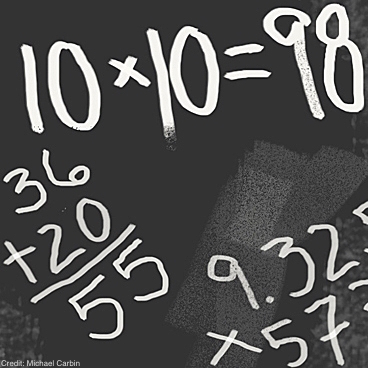 10×10=98
36
+20
55
9.32
×57
Credit: Michael Carbin